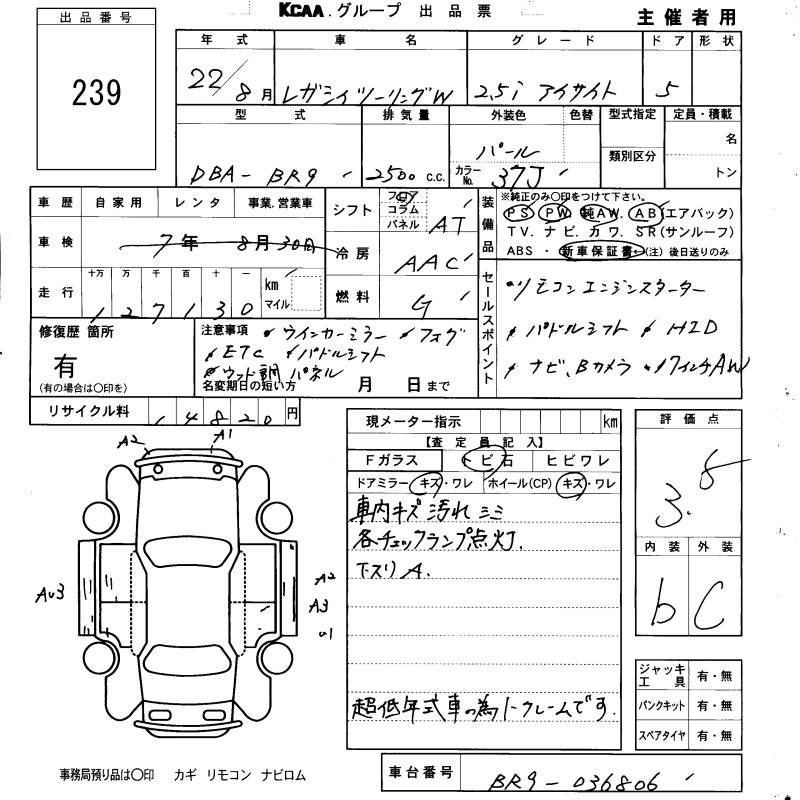 KCAA.グループ 出品票
主催者用
出品番号
239
年式 車名 グレード ドア 形状
22/8月 レガシィツーリングW 2.5i アイサイト 5
型式 排気量 外装色 色替 型式指定 定員・積載
名
類別区分
トン
DBA-BR9 2500 c.c. パール カラーNo. 37J
車歴 自家用 レンタ 事業.営業車
シフト フロア コラム パネル AT
装備品
※純正のみ○印をつけて下さい。
PS PW 純AW. AB(エアバック)
TV. ナビ. カワ. SR(サンルーフ)
ABS・新車保証書←(注) 後日送りのみ
車検 7年 8月30日
冷房 AAC
走行 十万 万 千 百 十 一 km マイル
127130
燃料 G
セールスポイント
リモコンエンジンスターター
パドルシフト HID
ナビ、Bカメラ 17インチAW
修復歴 箇所
有
(有の場合は○印を)
注意事項 ウインカーミラー フォグ
ETC パドルシフト
ウッド調パネル
名変期日の短い方 月 日まで
リサイクル料 14820円
現メーター指示 km
【査定員記入】
Fガラス トビ石 ヒビワレ
ドアミラー キズ・ワレ ホイール(CP) キズ・ワレ
車内キズ汚れシミ
各チェックランプ点灯.
下スリA.
超低年式車の為ノークレームです.
評価点
3.5
内装 外装
b C
A2 A1
AU3
A2
A3
U1
ジャッキ工具 有・無
パンクキット 有・無
スペアタイヤ 有・無
事務局預り品は○印 カギ リモコン ナビロム
車台番号 BR9-036806